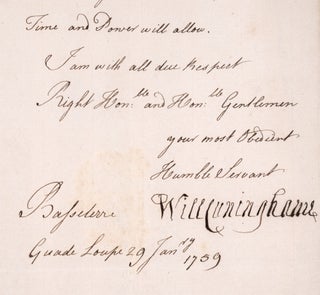 Time and Power will allow.
I am with all due Respect
Right Hon:ble and Hon:ble Gentlemen
your most Obedient
Humble Servant
Will Cuninghame
Basseterre
Guade Loupe 29 Janry 1759